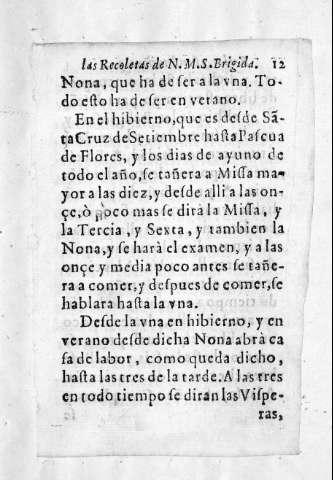 las Recoletas de N. M. S. Brigida. 12
Nona, que ha de ser a la vna. To-
do esto ha de ser en verano.
En el hibierno, que es desde Sã-
ta Cruz de Setiembre hasta Pascua
de Flores, y los dias de ayuno de
todo el año, se tañera a Missa ma-
yor a las diez, y desde alli a las on-
çe, ò poco mas se dirà la Missa, y
la Tercia, y Sexta, y tambien la
Nona, y se harà el examen, y a las
onçe y media poco antes se tañe-
ra a comer, y despues de comer, se
hablara hasta la vna.
Desde la vna en hibierno, y en
verano desde dicha Nona abrà ca
sa de labor, como queda dicho,
hasta las tres de la tarde. A las tres
en todo tiempo se diran las Vispe-
ras,